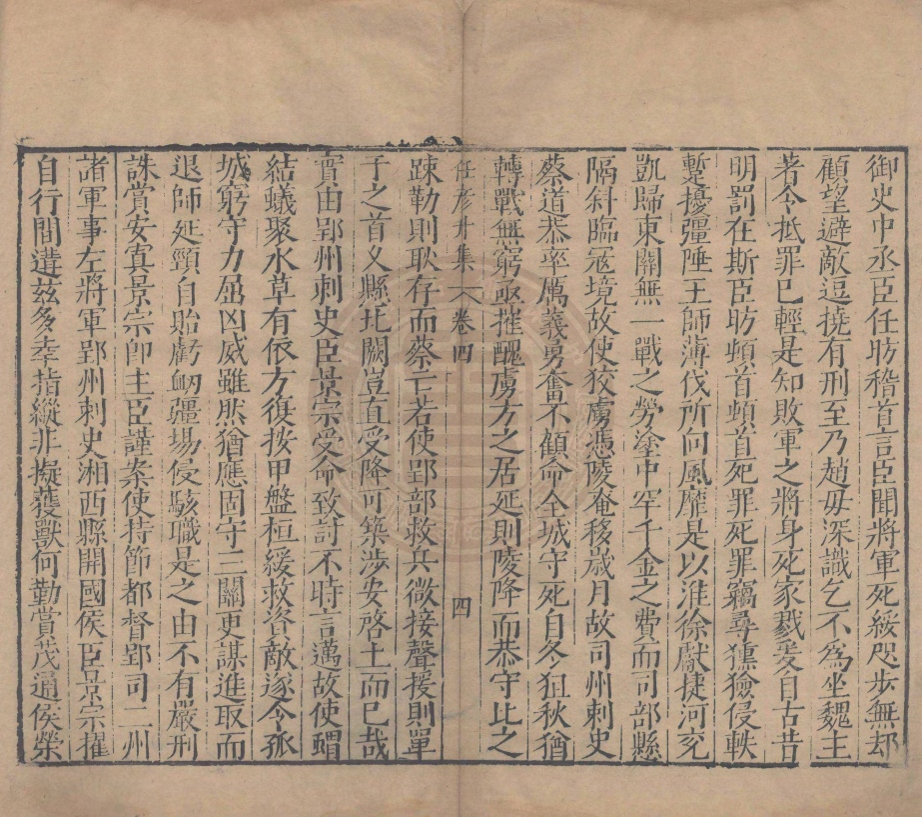 御史中丞臣任昉稽首言臣聞將軍死綏咫步無却
顧望避敵逗撓有刑至乃趙毋深識乞不爲坐魏主
著令抵罪已輕是知敗軍之將身死家戮爰自古昔
明罰在斯臣昉頓首頓首死罪死罪竊尋獯獫侵軼
蹔擾彊陲王師薄伐所向風靡是以淮徐獻捷河兖
凱歸東關無一戰之勞塗中罕千金之費而司部縣
隔斜臨寇境故使狡虜憑陵淹移歲月故司州刺史
蔡道恭率厲義勇奮不顧命全城守死自冬徂秋猶
轉戰無窮亟摧醜虜方之居延則陵降而恭守比之
任彦升集 卷四 四
踈勒則耿存而蔡亡若使郢部救兵微接聲援則單
于之首义縣北闕豈直受降可築涉安啓土而已哉
實由郢州刺史臣景宗受命致討不時言邁故使蝟
結蟻聚水草有依方復按甲盤桓緩救資敵遂令孤
城窮守力屈凶威雖然猶應固守三關更謀進取而
退師延頸自貽虧衂彊場侵駭職是之由不有嚴刑
誅賞安寘景宗卽主臣謹案使持節都督郢司二州
諸軍事左將軍郢州刺史湘西縣開國侯臣景宗擢
自行間遘兹多幸指縱非擬獲獸何勤賞茂通侯榮